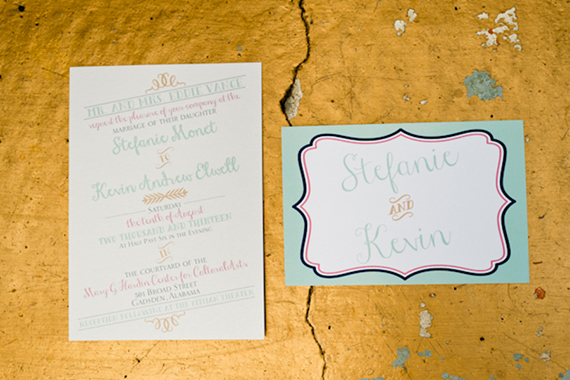 MR. AND MRS. EDDIE VANCE
request the pleasure of your company at the
MARRIAGE OF THEIR DAUGHTER
Stefanie Monet
TO
Kevin Andrew Elwell
SATURDAY
the tenth of August
TWO THOUSAND AND THIRTEEN
AT HALF PAST SIX IN THE EVENING
THE COURTYARD OF THE
Mary G Hardin Center for Cultural Arts
501 BROAD STREET
GADSDEN, ALABAMA
RECEPTION FOLLOWING AT THE PITMAN THEATRE
Stefanie
AND
Kevin